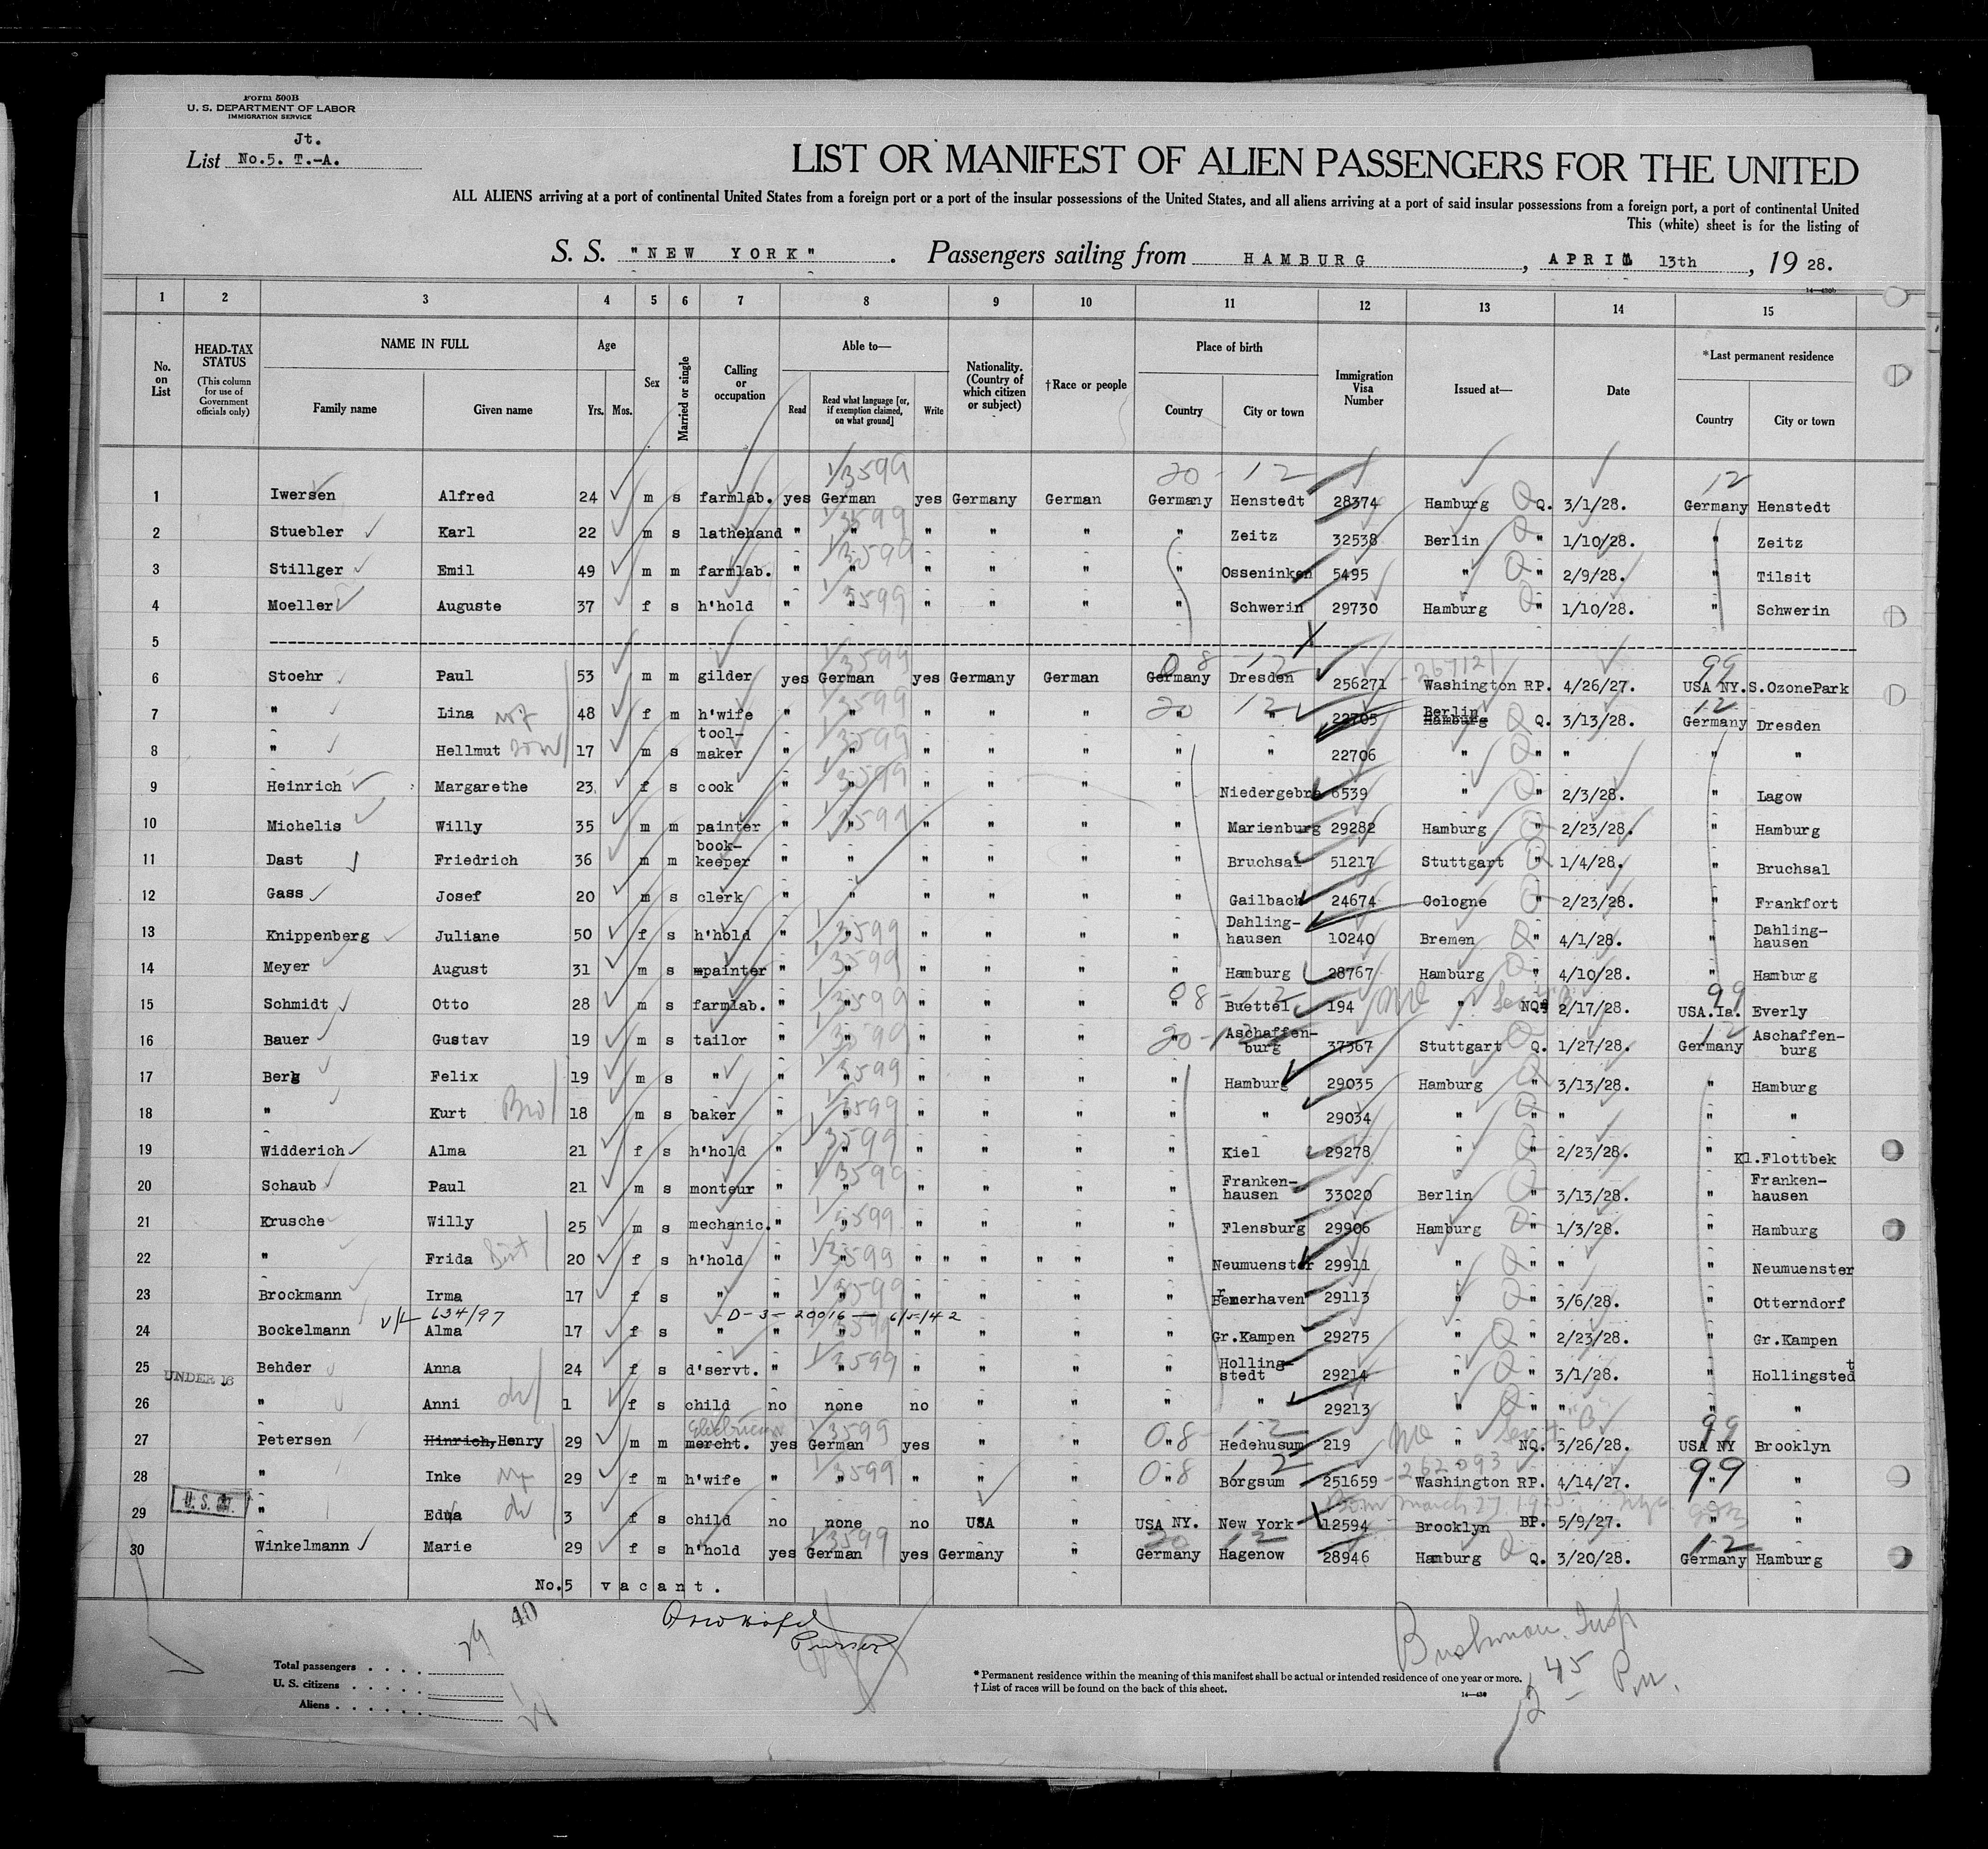 Form 500B
U. S. DEPARTMENT OF LABOR
IMMIGRATION SERVICE
Jt.
List No.5. T.-A.
LIST OR MANIFEST OF ALIEN PASSENGERS FOR THE UNITED
ALL ALIENS arriving at a port of continental United States from a foreign port or a port of the insular possessions of the United States, and all aliens arriving at a port of said insular possessions from a foreign port, a port of continental United
This (white) sheet is for the listing of
S. S. "NEW YORK" . Passengers sailing from HAMBURG , APRIL 13th , 19 28.
1 2 3 4 5 6 7 8 9 10 11 12 13 14 15
No. on List
HEAD-TAX STATUS (This column for use of Government officials only)
NAME IN FULL Family name Given name
Age Yrs. Mos.
Sex
Married or single
Calling or occupation
Able to— Read Read what language [or, if exemption claimed, on what ground] Write
Nationality. (Country of which citizen or subject)
†Race or people
Place of birth Country City or town
Immigration Visa Number
Issued at—
Date
*Last permanent residence Country City or town
1 Iwersen Alfred 24 m s farmlab. yes German yes Germany German Germany Henstedt 28374 Hamburg Q. 3/1/28. Germany Henstedt
2 Stuebler Karl 22 m s lathehand " " " " " " Zeitz 32538 Berlin " 1/10/28. " Zeitz
3 Stillger Emil 49 m m farmlab. " " " " " " Osseninken 5495 " " 2/9/28. " Tilsit
4 Moeller Auguste 37 f s h'hold " " " " " " Schwerin 29730 Hamburg " 1/10/28. " Schwerin
5
6 Stoehr Paul 53 m m gilder yes German yes Germany German Germany Dresden 256271 -267121 Washington RP. 4/26/27. USA NY. S.OzonePark
7 " Lina 48 f m h'wife " " " " " " " 22705 Berlin Hamburg Q. 3/13/28. Germany Dresden
8 " Hellmut 17 m s tool-maker " " " " " " " 22706 " " " " "
9 Heinrich Margarethe 23 f s cook " " " " " " Niedergebra 6539 " " 2/3/28. " Lagow
10 Michelis Willy 35 m m painter " " " " " " Marienburg 29282 Hamburg " 2/23/28. " Hamburg
11 Dast Friedrich 36 m m book-keeper " " " " " " Bruchsal 51217 Stuttgart " 1/4/28. " Bruchsal
12 Gass Josef 20 m s clerk " " " " " " Gailbach 24674 Cologne " 2/23/28. " Frankfort
13 Knippenberg Juliane 50 f s h'hold " " " " " " Dahling-hausen 10240 Bremen " 4/1/28. " Dahling-hausen
14 Meyer August 31 m s painter " " " " " " Hamburg 28767 Hamburg " 4/10/28. " Hamburg
15 Schmidt Otto 28 m s farmlab. " " " " " " Buettel 194 " NQ. 2/17/28. USA.Ia. Everly
16 Bauer Gustav 19 m s tailor " " " " " " Aschaffen-burg 37367 Stuttgart Q. 1/27/28. Germany Aschaffen-burg
17 Berg Felix 19 m s " " " " " " " Hamburg 29035 Hamburg " 3/13/28. " Hamburg
18 " Kurt Bro 18 m s baker " " " " " " " 29034 " " " " "
19 Widderich Alma 21 f s h'hold " " " " " " Kiel 29278 " " 2/23/28. " Kl.Flottbek
20 Schaub Paul 21 m s monteur " " " " " " Franken-hausen 33020 Berlin " 3/13/28. " Franken-hausen
21 Krusche Willy 25 m s mechanic. " " " " " " Flensburg 29906 Hamburg " 1/3/28. " Hamburg
22 " Frida 20 f s h'hold " " " " " " " " Neumuenster 29911 " " " " Neumuenster
23 Brockmann Irma 17 f s " " " " " " " Bremerhaven 29113 " " 3/6/28. " Otterndorf
V/L 634/97 D-3-20016 — 6/5/42
24 Bockelmann Alma 17 f s " " " " " " " Gr.Kampen 29275 " " 2/23/28. " Gr.Kampen
25 Behder Anna 24 f s d'servt. " " " " " " Holling-stedt 29214 " " 3/1/28. " Hollingstedt
UNDER 16
26 " Anni 1 f s child no none no " " " " 29213 " " " " "
27 Petersen Hinrich, Henry 29 m m Electrician mercht. yes German yes " " " Hedehusum 219 " NQ. 3/26/28. USA NY Brooklyn
28 " Inke 29 f m h'wife " " " " " " Borgsum 251659 -262093 Washington RP. 4/14/27. " "
U. S. Born March 27 1925
29 " Edna 3 f s child no none no USA " USA NY. New York 12594 Brooklyn BP. 5/9/27. " "
30 Winkelmann Marie 29 f s h'hold yes German yes Germany " Germany Hagenow 28946 Hamburg Q. 3/20/28. Germany Hamburg
No.5 vacant.
40
Purser
Total passengers . . . . 29
U. S. citizens . . . . . 1
Aliens . . . . . .
* Permanent residence within the meaning of this manifest shall be actual or intended residence of one year or more.
† List of races will be found on the back of this sheet.
Bushman, Insp
2 45 P.M.